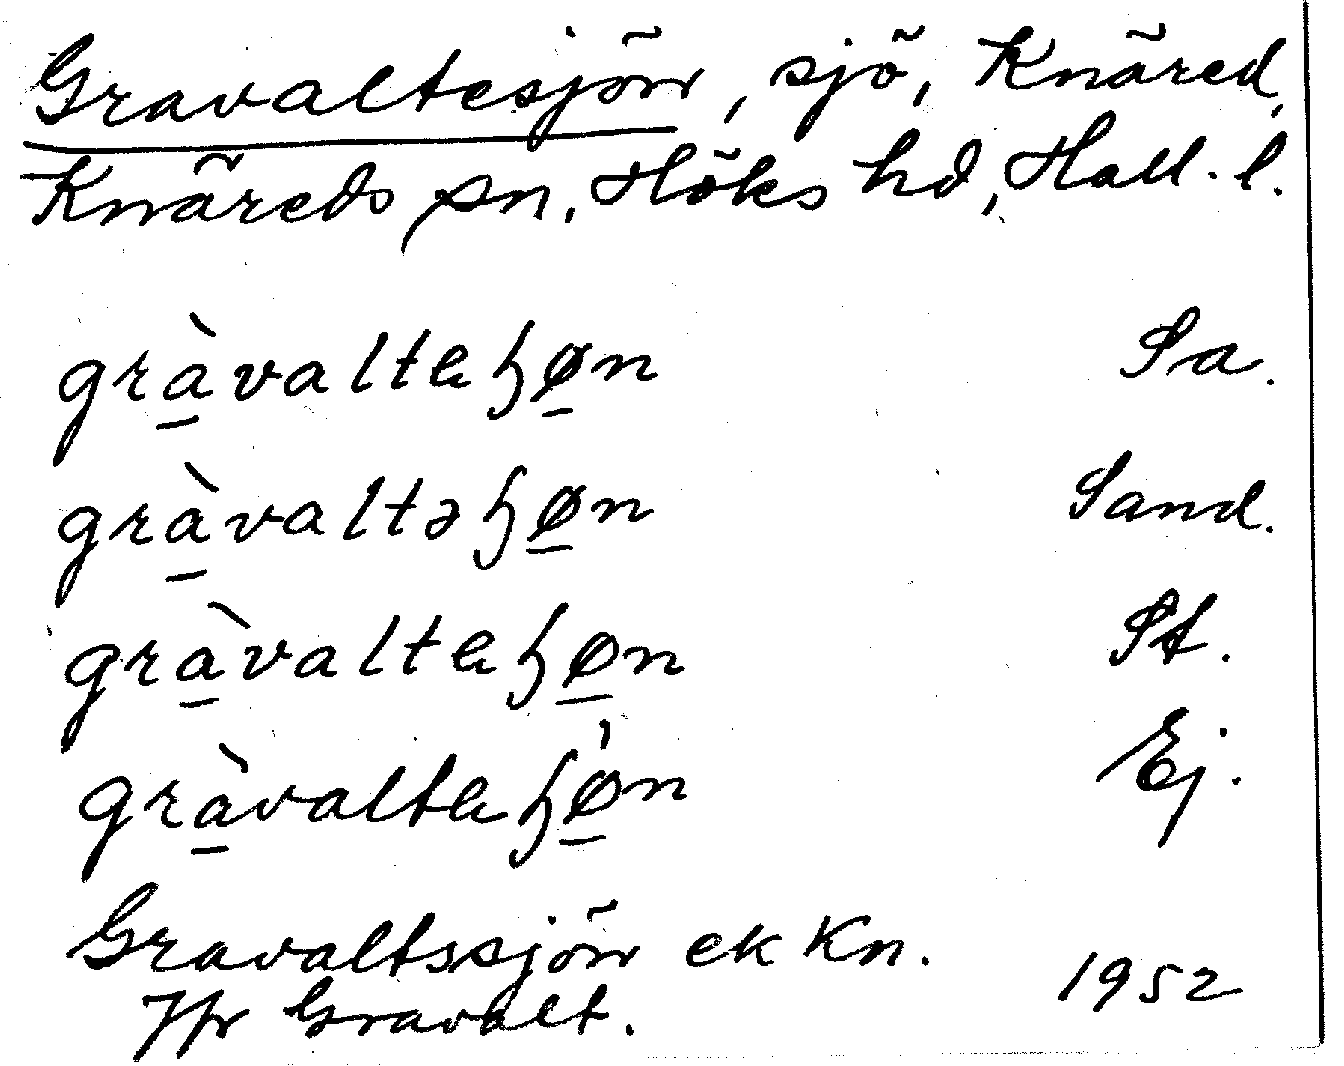 Gravaltesjön, sjö, Knäred,
Knäreds sn, Höks hd, Hall. l.
gràvalteɧøn Sa.
gràvaltəɧøn Sand.
gràvalteɧøn St.
gràvalteɧø̍n Ej.
Gravaltssjön ek Kn.
Jfr Gravalt. 1952